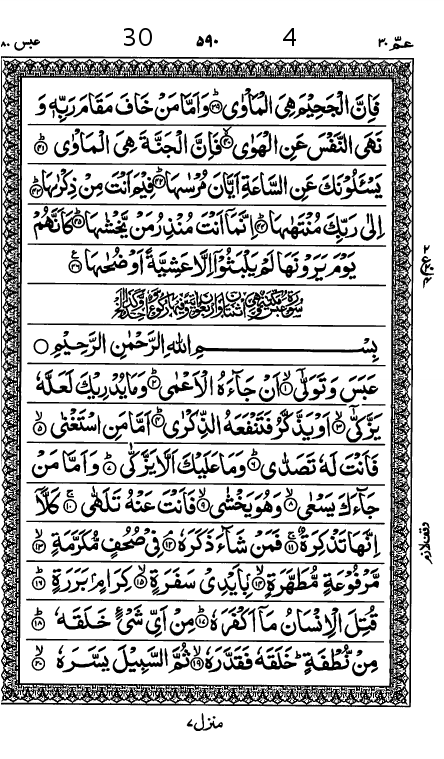 عمّ ٣٠ 4 ٥٩٠ 30 عبس ٨٠
فَاِنَّ الْجَحِیْمَ هِیَ الْمَاْوٰی ﴿٣٩﴾ وَاَمَّا مَنْ خَافَ مَقَامَ رَبِّهٖ وَ
نَهَی النَّفْسَ عَنِ الْهَوٰی ﴿٤٠﴾ فَاِنَّ الْجَنَّةَ هِیَ الْمَاْوٰی ﴿٤١﴾
یَسْـَٔلُوْنَكَ عَنِ السَّاعَةِ اَیَّانَ مُرْسٰىهَا ﴿٤٢﴾ فِیْمَ اَنْتَ مِنْ ذِكْرٰىهَا ﴿٤٣﴾
اِلٰی رَبِّكَ مُنْتَهٰىهَا ﴿٤٤﴾ اِنَّمَاۤ اَنْتَ مُنْذِرُ مَنْ یَّخْشٰىهَا ﴿٤٥﴾ كَاَنَّهُمْ
یَوْمَ یَرَوْنَهَا لَمْ یَلْبَثُوْۤا اِلَّا عَشِیَّةً اَوْ ضُحٰىهَا ﴿٤٦﴾
بِسْمِ اللهِ الرَّحْمٰنِ الرَّحِیْمِ
عَبَسَ وَتَوَلّٰۤی ﴿١﴾ اَنْ جَآءَهُ الْاَعْمٰی ﴿٢﴾ وَمَا یُدْرِیْكَ لَعَلَّهٗ
یَزَّكّٰۤی ﴿٣﴾ اَوْ یَذَّكَّرُ فَتَنْفَعَهُ الذِّكْرٰی ﴿٤﴾ اَمَّا مَنِ اسْتَغْنٰی ﴿٥﴾
فَاَنْتَ لَهٗ تَصَدّٰی ﴿٦﴾ وَمَا عَلَیْكَ اَلَّا یَزَّكّٰی ﴿٧﴾ وَاَمَّا مَنْ
جَآءَكَ یَسْعٰی ﴿٨﴾ وَهُوَ یَخْشٰی ﴿٩﴾ فَاَنْتَ عَنْهُ تَلَهّٰی ﴿١٠﴾ كَلَّاۤ
اِنَّهَا تَذْكِرَةٌ ﴿١١﴾ فَمَنْ شَآءَ ذَكَرَهٗ ﴿١٢﴾ فِیْ صُحُفٍ مُّكَرَّمَةٍ ﴿١٣﴾
مَّرْفُوْعَةٍ مُّطَهَّرَةٍۭ ﴿١٤﴾ بِاَیْدِیْ سَفَرَةٍ ﴿١٥﴾ كِرَامٍۭ بَرَرَةٍ ﴿١٦﴾
قُتِلَ الْاِنْسَانُ مَاۤ اَكْفَرَهٗ ﴿١٧﴾ مِنْ اَیِّ شَیْءٍ خَلَقَهٗ ﴿١٨﴾
مِنْ نُّطْفَةٍ ؕ خَلَقَهٗ فَقَدَّرَهٗ ﴿١٩﴾ ثُمَّ السَّبِیْلَ یَسَّرَهٗ ﴿٢٠﴾
منزل ٧